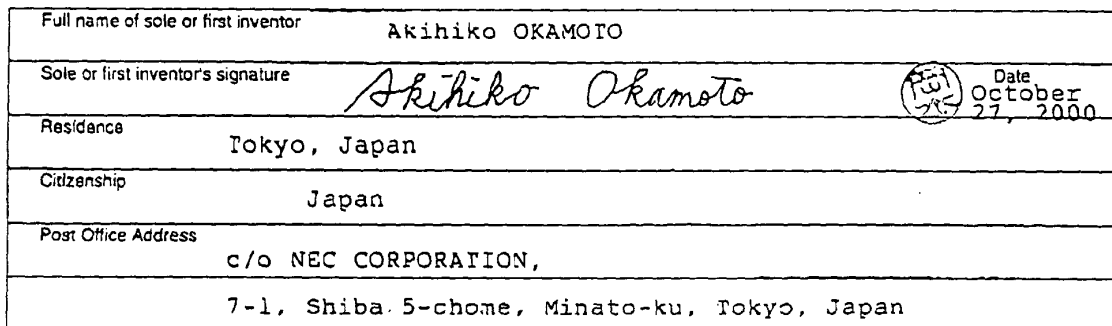 Full name of sole or first inventor
Akihiko OKAMOTO
Sole or first inventor's signature
Akihiko Okamoto
Date
October
27, 2000
Residence
Tokyo, Japan
Citizenship
Japan
Post Office Address
c/o NEC CORPORATION,
7-1, Shiba 5-chome, Minato-ku, Tokyo, Japan